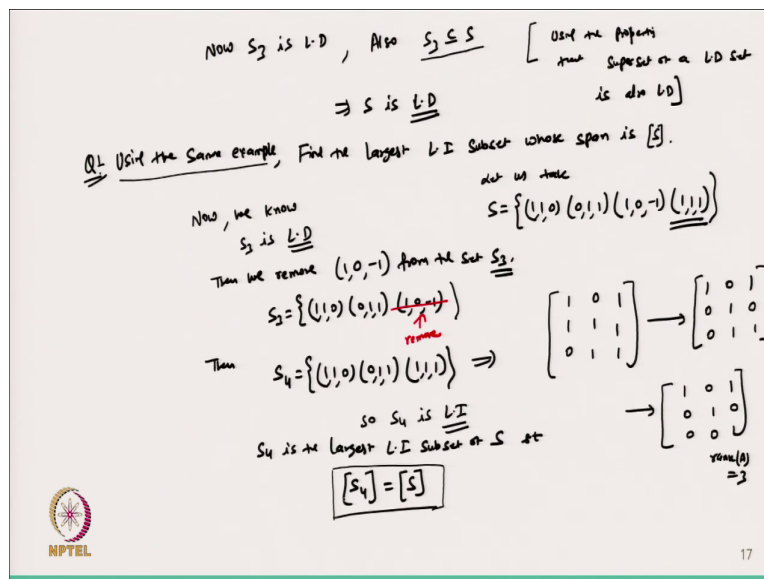 Now S3 is L.D , Also S3 ⊆ S [ Using the property
that superset of a LD set
is also LD]
⇒ S is L.D
Q! Using the same example, Find the largest L.I subset whose span is [S].
Let us take
S={(1,1,0) (0,1,1) (1,0,-1) (1,1,1)}
Now, we know
S3 is L.D
Then we remove (1,0,-1) from the set S3.
S3={(1,1,0) (0,1,1) (1,0,-1)}
remove
[1 0 1
1 1 1
0 1 1] → [1 0 1
0 1 0
0 1 1]
Then S4={(1,1,0) (0,1,1) (1,1,1)} ⇒
→ [1 0 1
0 1 0
0 0 1]
rank(A)
=3
so S4 is L.I
S4 is the largest L.I subset of S st
[S4] = [S]
NPTEL
17